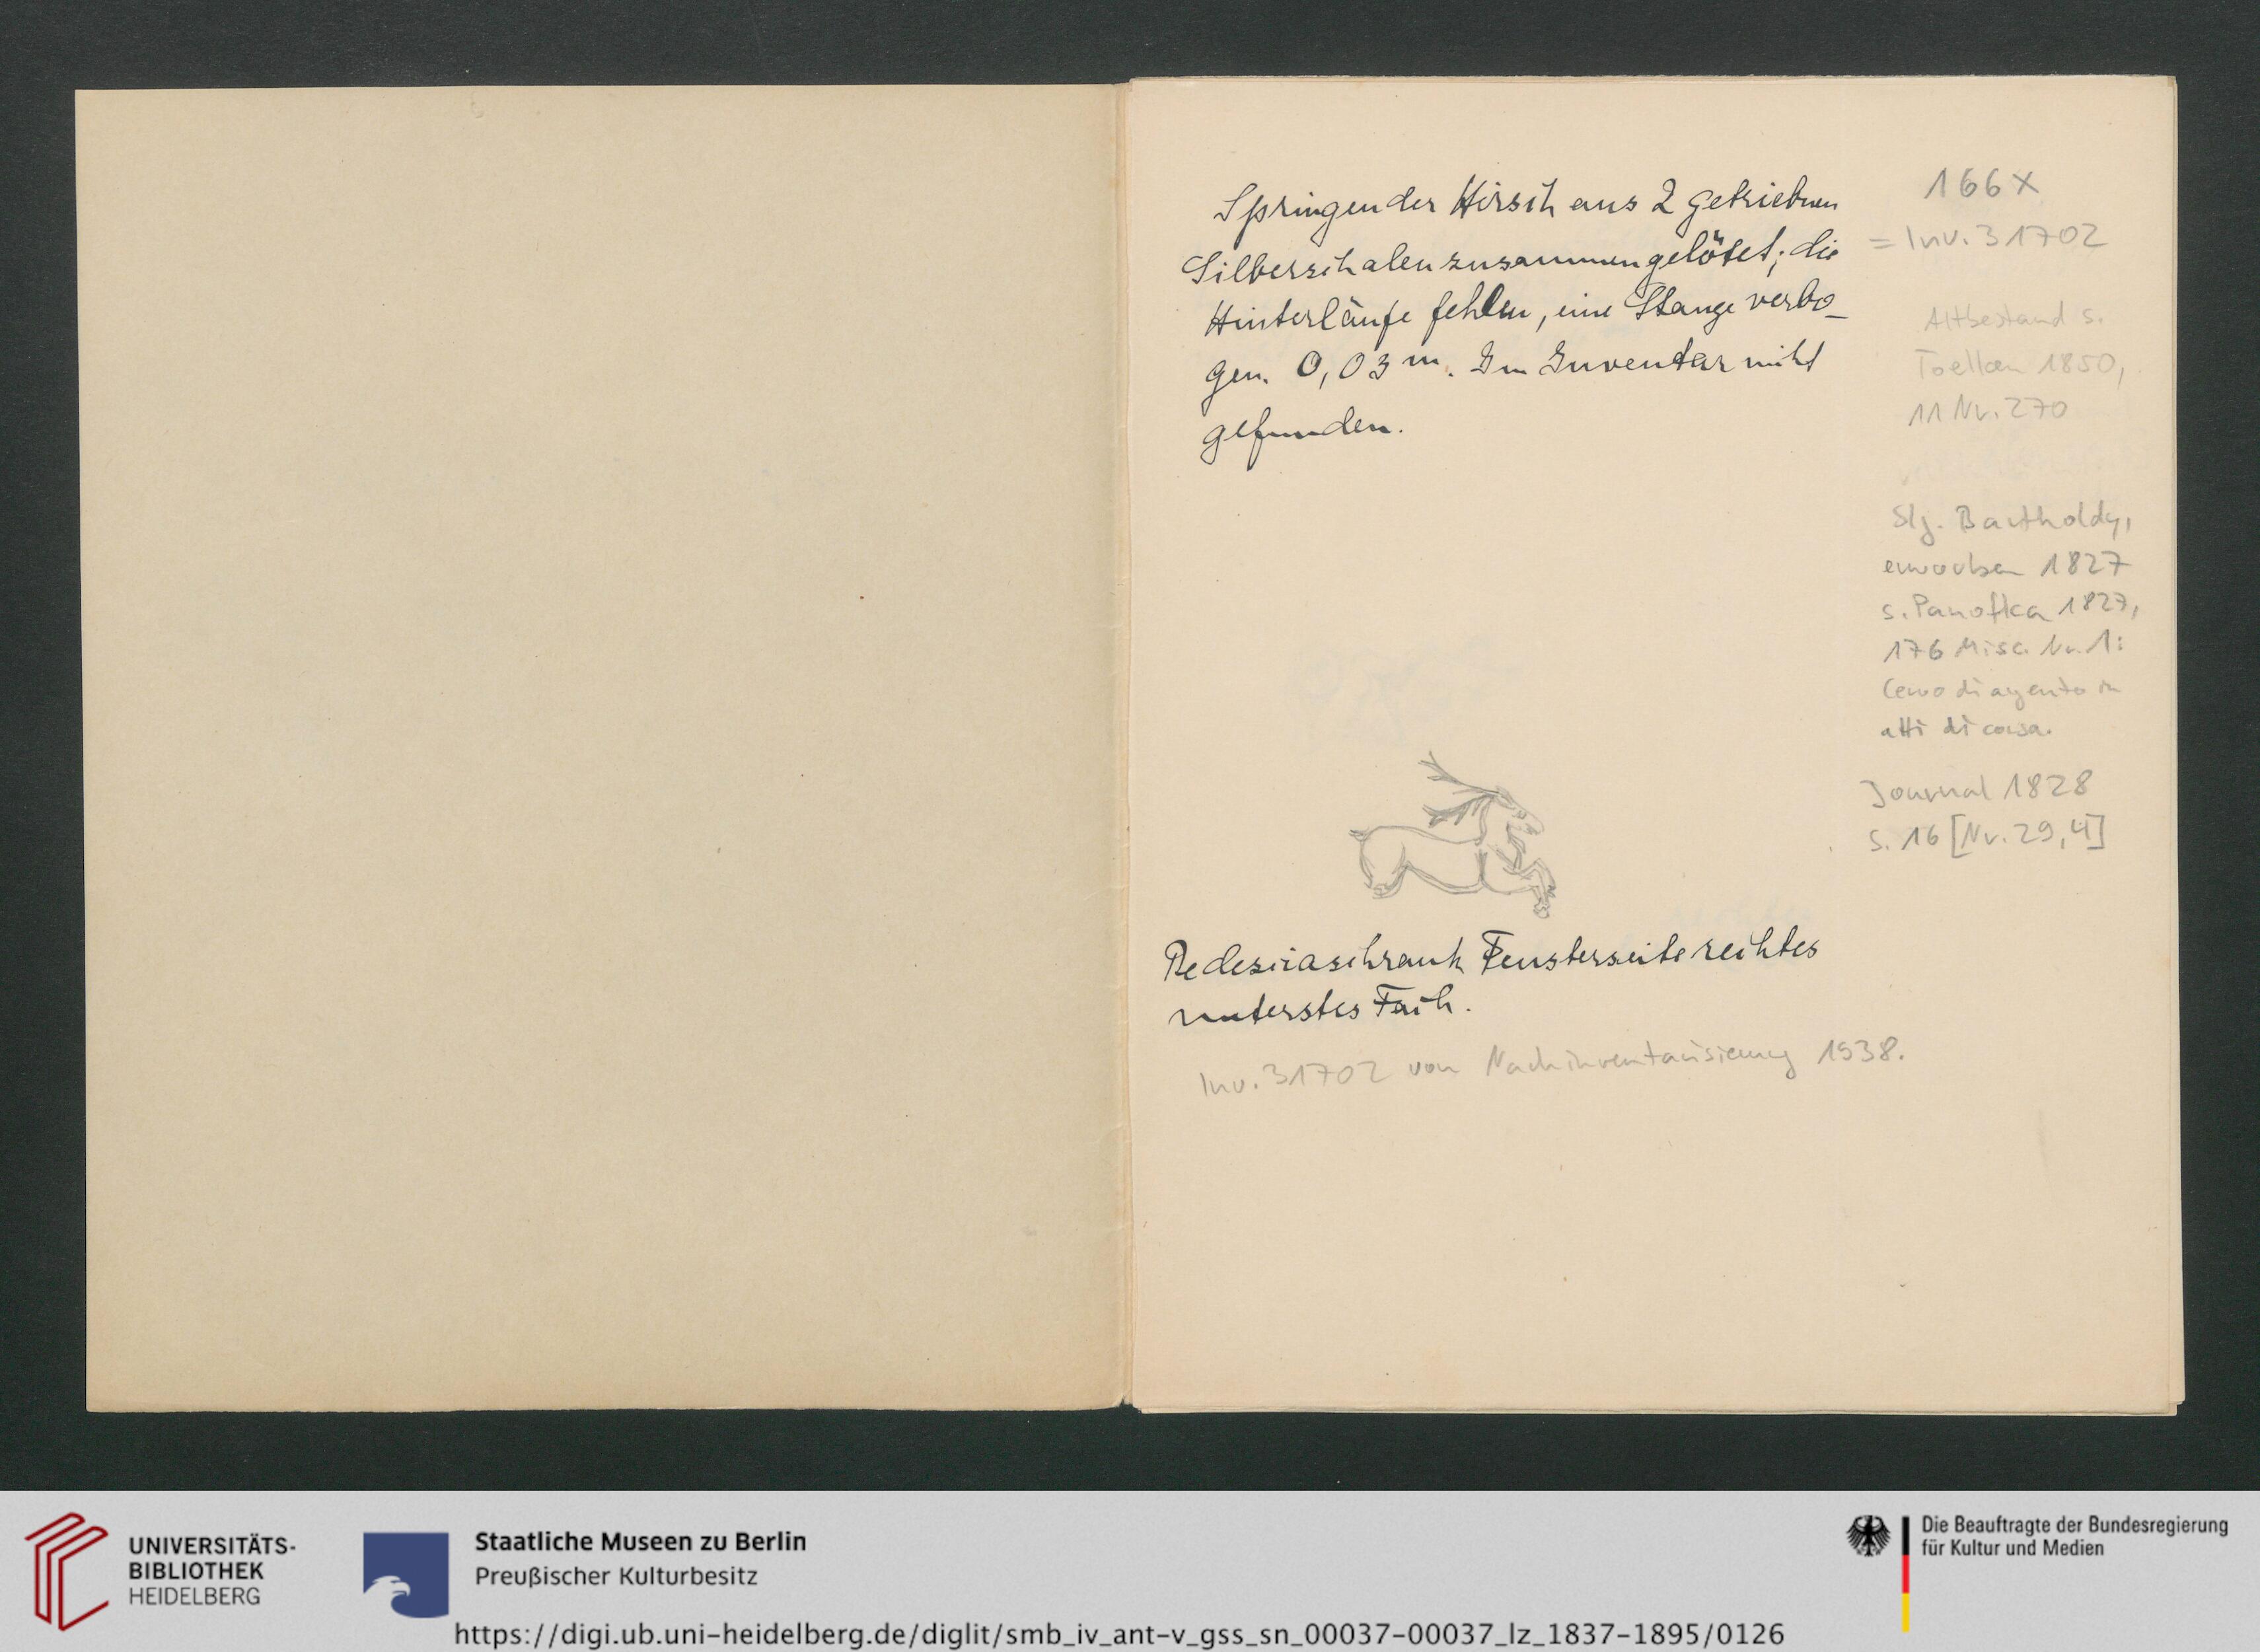 Springender Hirsch aus 2 getriebnen
Silberschalen zusammengelötet; die
Hinterläufe fehlen, eine Stange verbo-
gen. 0,03 m. Im Inventar nicht
gefunden.
166x
= Inv. 31702
Altbestand s.
Toelken 1850,
11 Nr. 270
Slg. Bartholdy,
erworben 1827
s. Panofka 1827,
176 Misc. Nr. 1:
Cervo di argento in
atti di corsa.
Journal 1828
S. 16 [Nr. 29,4]
Fensterseite rechtes
unterstes Fach.
Inv. 31702 von Nachinventarisierung 1938.
UNIVERSITÄTS-
BIBLIOTHEK
HEIDELBERG
Staatliche Museen zu Berlin
Preußischer Kulturbesitz
Die Beauftragte der Bundesregierung
für Kultur und Medien
https://digi.ub.uni-heidelberg.de/diglit/smb_iv_ant-v_gss_sn_00037-00037_lz_1837-1895/0126